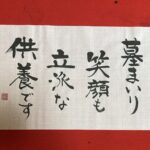 墓まいり
笑顔も
立派な
供養です